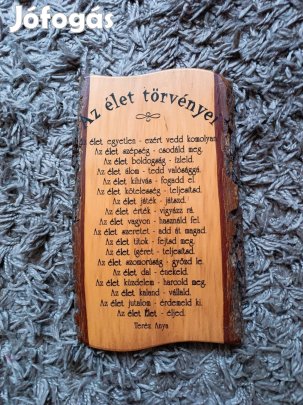 Jófogás
Az élet törvényei
élet egyetlen - ezért vedd komolyan
Az élet szépség - csodáld meg.
Az élet boldogság - ízleld.
Az élet álom - tedd valósággá.
Az élet kihívás - fogadd el.
Az élet kötelesség - teljesítsd.
Az élet játék - játszd.
Az élet érték - vigyázz rá.
Az élet vagyon - használd fel.
Az élet szeretet - add át magad.
Az élet titok - fejtsd meg.
Az élet ígéret - teljesítsd.
Az élet szomorúság - győzd le.
Az élet dal - énekeld.
Az élet küzdelem - harcold meg.
Az élet kaland - vállald.
Az élet jutalom - érdemeld ki.
Az élet Élet - éljed.
Teréz Anya